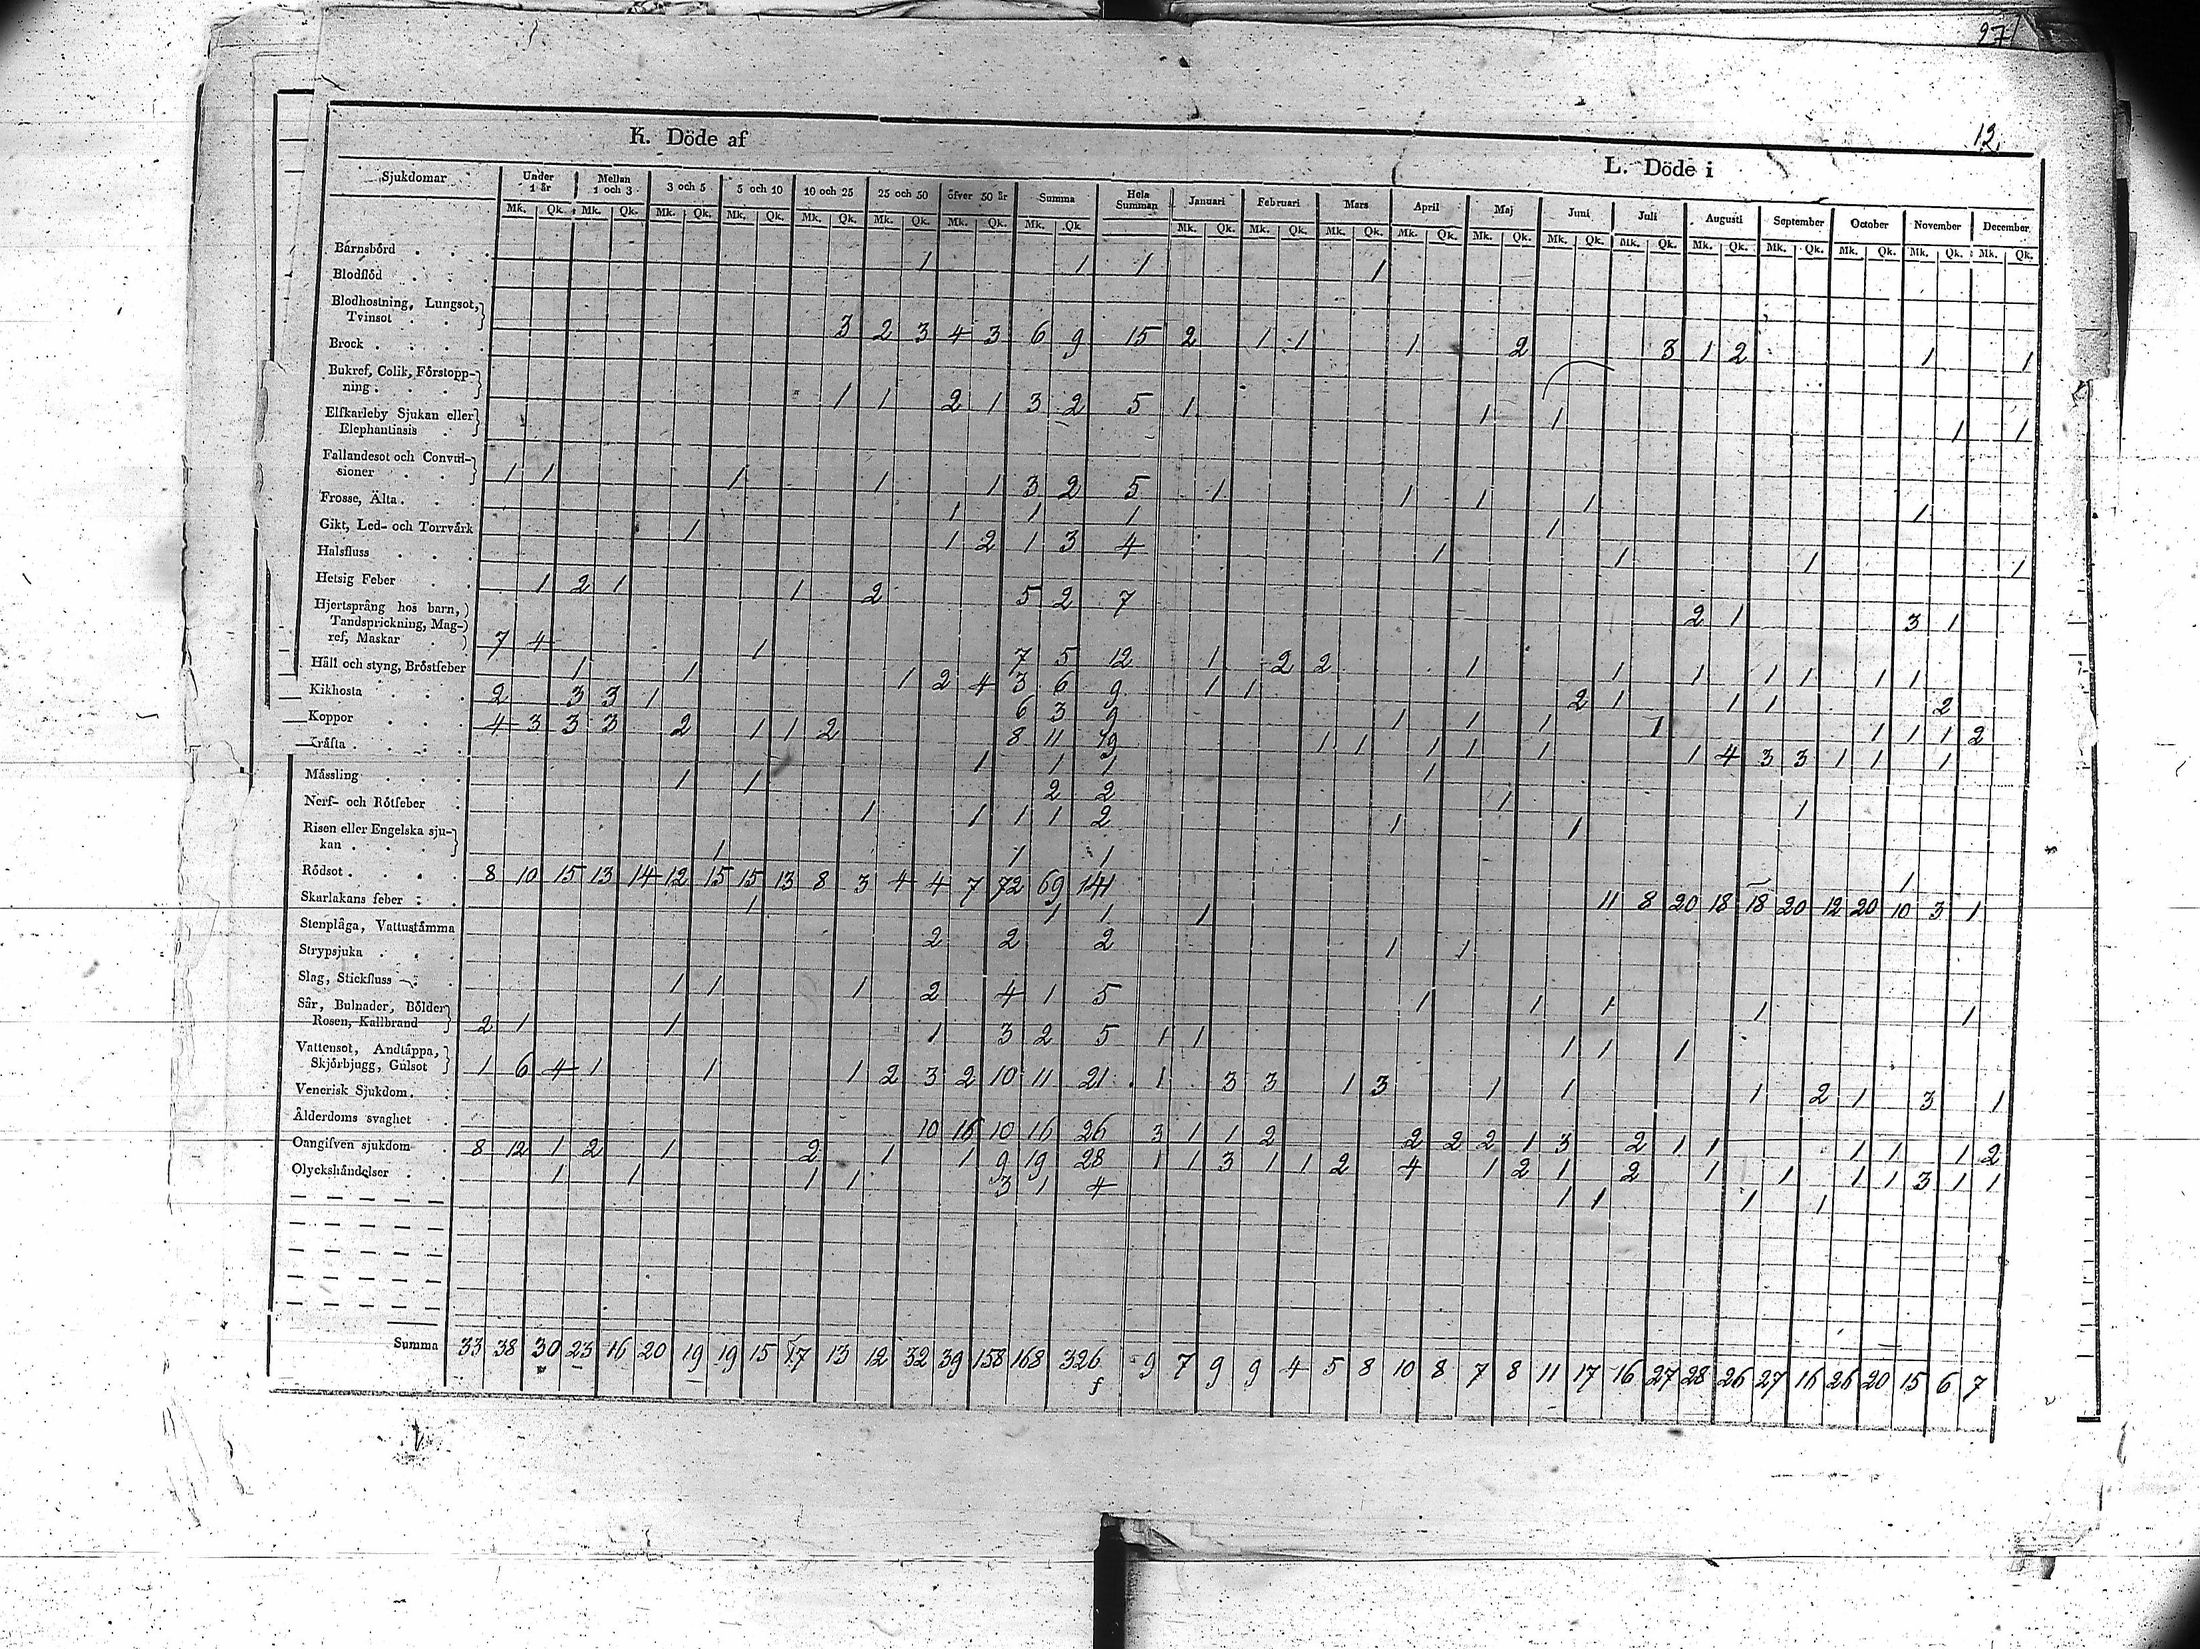 27
12.
K. Döde af
L. Döde i
Sjukdomar Under 1 år Mellan 1 och 3 3 och 5 5 och 10 10 och 25 25 och 50 öfver 50 år Summa Hela Summan Januari Februari Mars April Maj Juni Juli Augusti September October November December
Mk. Qk. Mk. Qk. Mk. Qk. Mk. Qk. Mk. Qk. Mk. Qk. Mk. Qk. Mk. Qk. Mk. Qk. Mk. Qk. Mk. Qk. Mk. Qk. Mk. Qk. Mk. Qk. Mk. Qk. Mk. Qk. Mk. Qk. Mk. Qk. Mk. Qk. Mk. Qk.
Barnsbörd . . . 1 1 1 1
Blodflöd . . .
Blodhostning, Lungsot,
Tvinsot . . 3 2 3 4 3 6 9 15 2 1 1 1 2 3 1 2 1 1
Brock . . . .
Bukref, Colik, Förstopp-
ning . . . 1 1 2 1 3 2 5 1 1 1 1 1
Elfkarleby Sjukan eller
Elephantiasis .
Fallandesot och Convul-
sioner . . 1 1 1 1 1 3 2 5 1 1 1 1 1
Frosse, Älta . . . 1 1 1 1
Gikt, Led- och Torrvärk 1 1 2 1 3 4 1 1 1 1
Halsfluss . . .
Hetsig Feber . . 1 2 1 1 2 5 2 7 2 1 3 1
Hjertsprång hos barn,
Tandsprickning, Mag-
ref, Maskar . 7 4 1 7 5 12 1 2 2 1 1 1 1 1 1 1
Håll och styng, Bröstfeber 1 1 1 2 4 3 6 9 1 1 2 1 1 1 2
Kikhosta . . . 2 3 3 1 6 3 9 1 1 1 1 1 1 1 2
Koppor . . . 4 3 3 3 2 1 1 2 8 11 19 1 1 1 1 1 1 4 3 3 1 1 1
Kräfta . . . . 1 1 1 1
Mässling . . . 1 1 2 2 1 1
Nerf- och Rötfeber . 1 1 1 1 2 1 1
Risen eller Engelska sju-
kan . . . . 1 1 1 1
Rödsot . . . . 8 10 15 13 14 12 15 15 13 8 3 4 4 7 72 69 141 11 8 20 18 18 20 12 20 10 3 1
Skarlakans feber . . 1 1 1 1
Stenplåga, Vattustämma 2 2 2 1 1
Strypsjuka . . .
Slag, Stickfluss . . 1 1 1 2 4 1 5 1 1 1 1 1
Sår, Bulnader, Bölder
Rosen, Kallbrand 2 1 1 1 3 2 5 1 1 1 1 1
Vattensot, Andtäppa,
Skjörbjugg, Gulsot 1 6 4 1 1 1 2 3 2 10 11 21 1 3 3 1 3 1 1 1 2 1 3 1
Venerisk Sjukdom . .
Ålderdoms svaghet . 10 16 10 16 26 3 1 1 2 2 2 2 1 3 2 1 1 1 1 1 2
Oangifven sjukdom . 8 12 1 2 1 2 1 1 9 19 28 1 1 3 1 1 2 4 1 2 1 2 1 1 1 1 3 1 1
Olyckshändelser . . 1 1 1 1 3 1 4 1 1 1 1
Summa 33 38 30 23 16 20 19 19 15 17 13 12 32 39 158 168 326 9 7 9 9 4 5 8 10 8 7 8 11 17 16 27 28 26 27 16 26 20 15 6 7